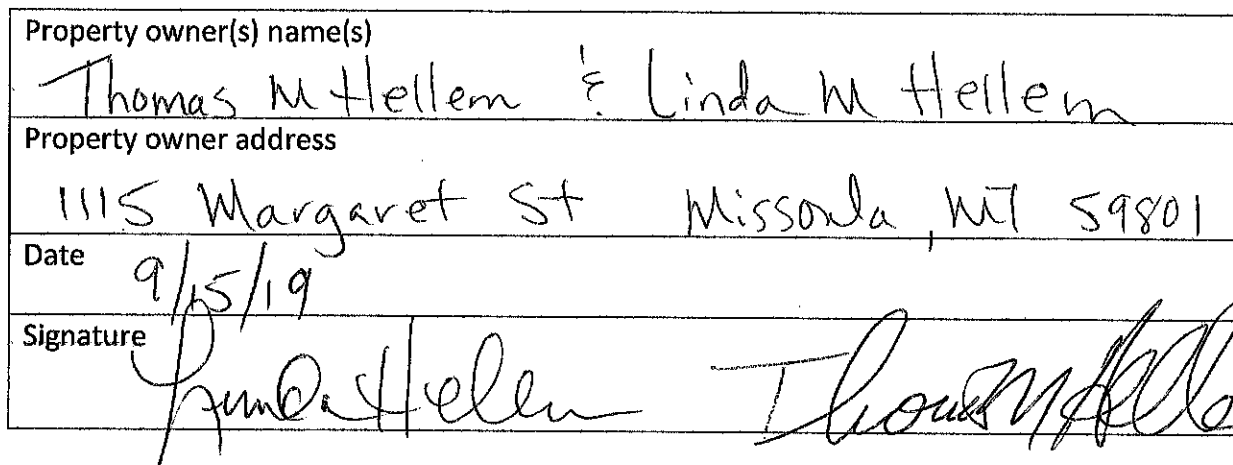 Property owner(s) name(s)
Thomas M Hellem & Linda M Hellem
Property owner address
1115 Margaret St Missoula, MT 59801
Date 9/15/19
Signature Linda Hellem Thomas M Helle